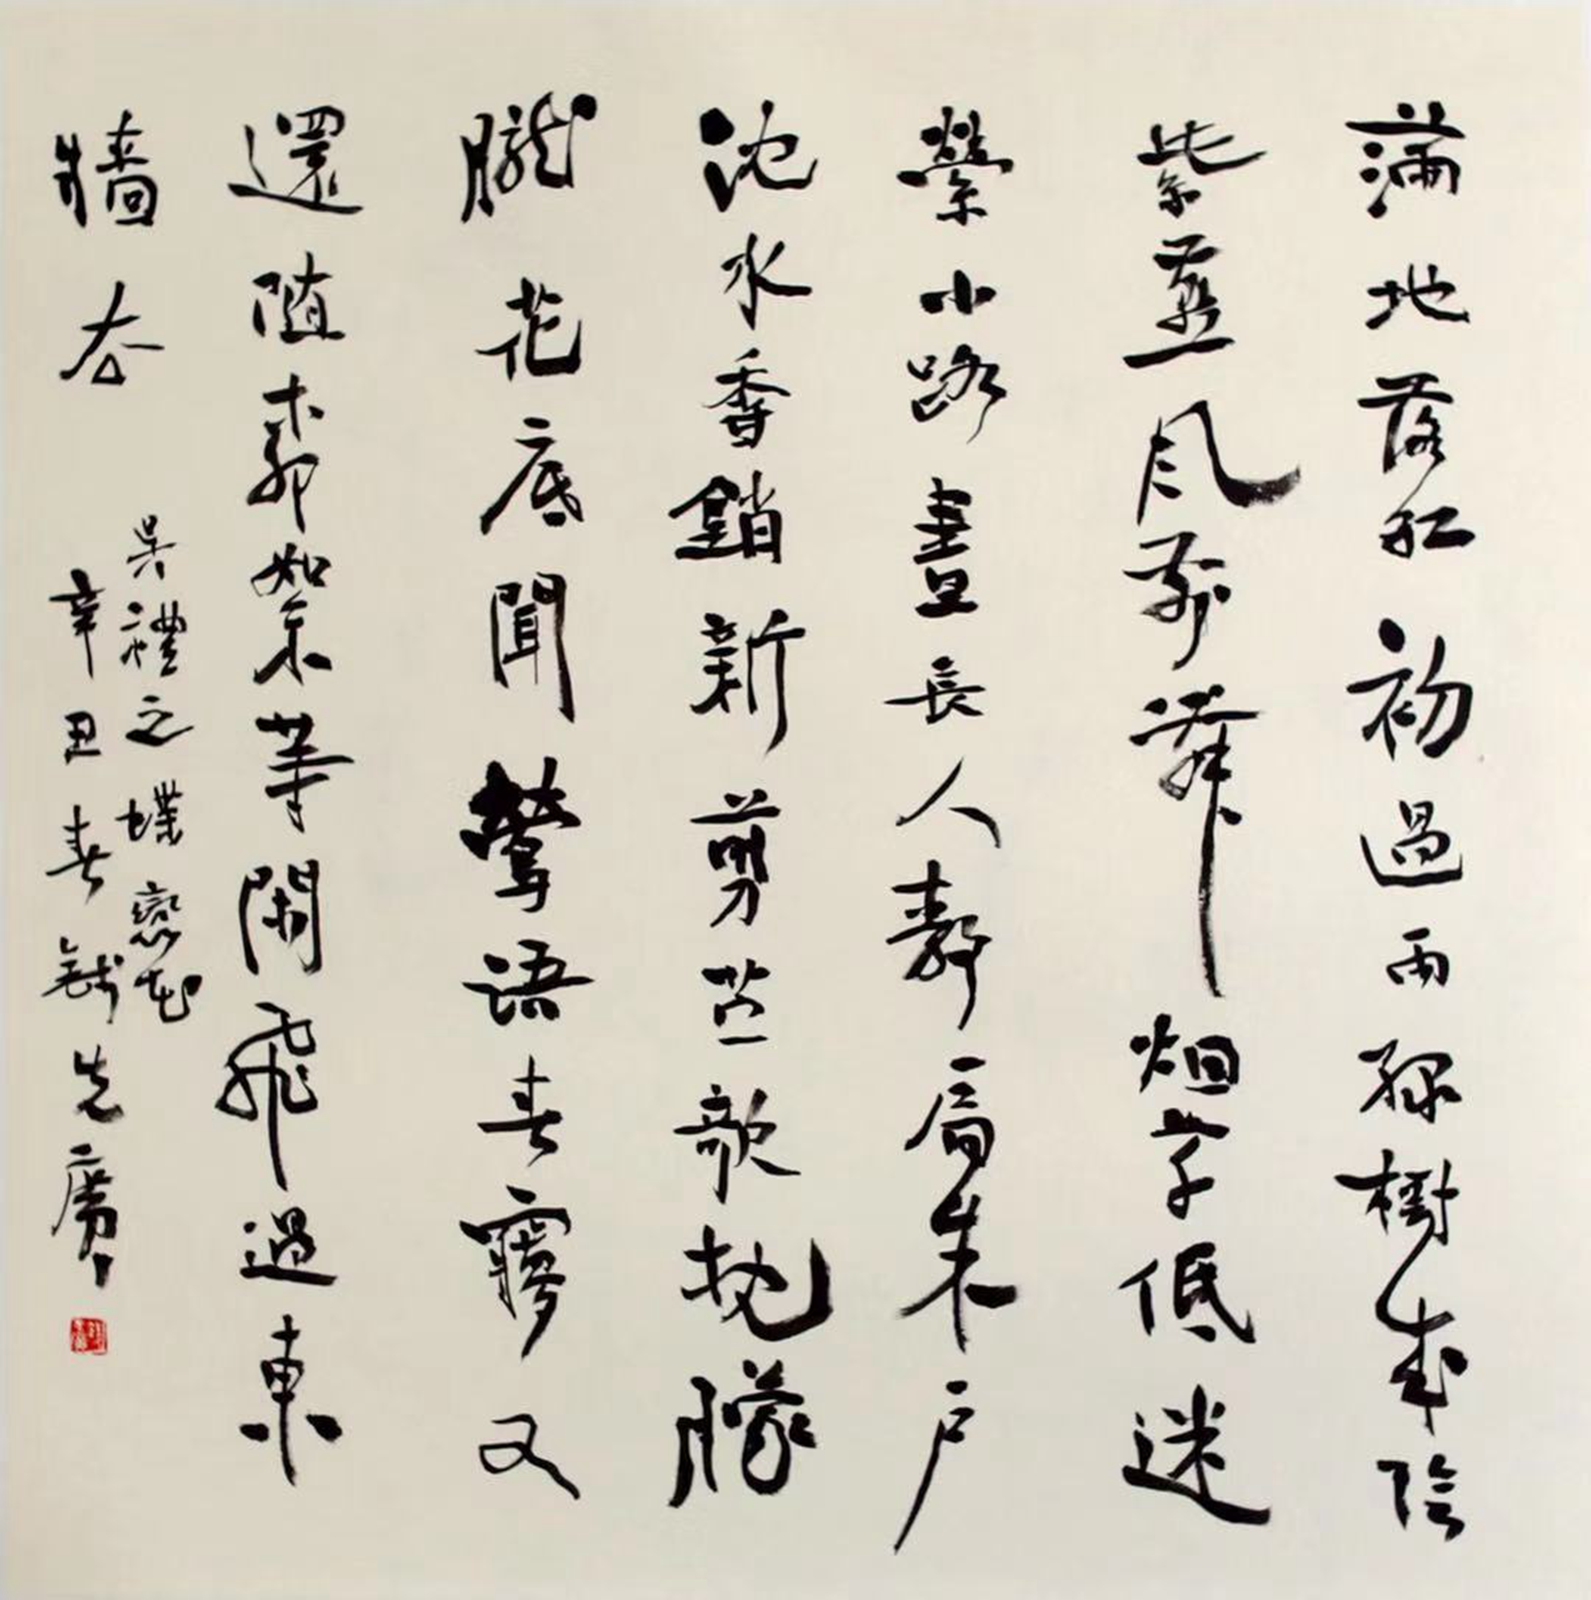 滿地落紅初過雨綠樹成陰
紫燕風前舞烟草低迷
縈小路晝長人靜扃朱戶
沈水香銷新剪苎欹枕朦
朧花底聞鶯語春夢又
還隨柳絮等閑飛過東
牆去
吳禮之蝶戀花
辛丑春錢先廣